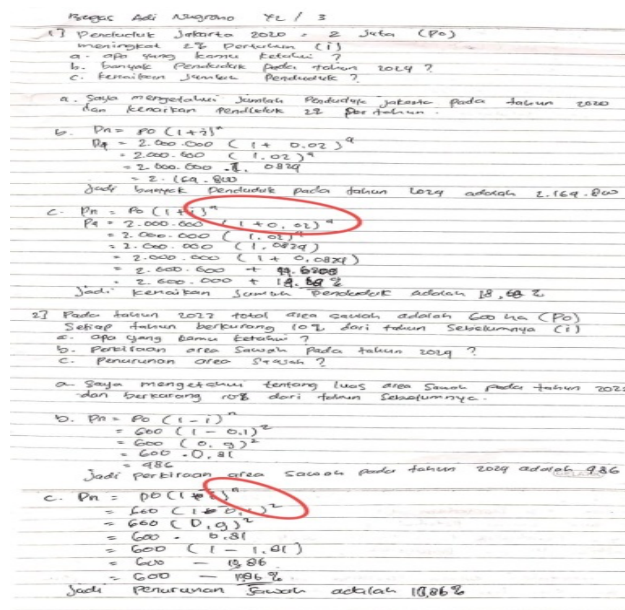 Bagas Adi Nugroho X2 / 3
1] Penduduk Jakarta 2020 = 2 Juta (Po)
meningkat 2% Pertahun (i)
a. apa yang kamu ketahui ?
b. banyak Penduduk pada tahun 2024 ?
c. kenaikan Jumlah Penduduk ?
a. Saya mengetahui Jumlah Penduduk jakarta pada tahun 2020
dan kenaikan Penduduk 2% per tahun.
b. Pn = Po (1+i)ⁿ
P4 = 2.000.000 ( 1 + 0.02)⁴
= 2.000.000 ( 1.02)⁴
= 2.000.000 . 1. 0824
= 2.164.800
Jadi banyak Penduduk pada tahun 2024 adalah 2.164.800
c. Pn = Po (1+i)ⁿ
P4 = 2.000.000 ( 1 + 0,02)⁴
= 2.000.000 ( 1,02)⁴
= 2.000.000 ( 1,0824)
= 2.000.000 ( 1 + 0,0824)
= 2.000.000 +
= 2.000.000 + %
Jadi kenaikan Jumlah Penduduk Adalah 18,68 %
2] Pada tahun 2022 total area sawah adalah 600 ha (Po)
Setiap tahun berkurang 10% dari tahun Sebelumnya (i)
a. apa yang kamu ketahui ?
b. Perkiraan area Sawah Pada tahun 2024 ?
c. Penurunan area Sawah ?
a Saya mengetahui tentang luas area Sawah pada tahun 2022
dan berkurang 10% dari tahun Sebelumnya.
b. Pn = Po (1-i)ⁿ
= 600 (1 - 0.1)²
= 600 (0.9)²
= 600 . 0,81
= 486
Jadi Perkiraan area Sawah pada tahun 2024 adalah 486
c. Pn = Po (1-i)ⁿ
= 600 (1 - 0,1)²
= 600 (0,9)²
= 600 . 0.81
= 600 ( 1 - 1.81)
= 600 - 19,86
= 600 - 1986 %
Jadi Penurunan Sawah adalah 19,86%